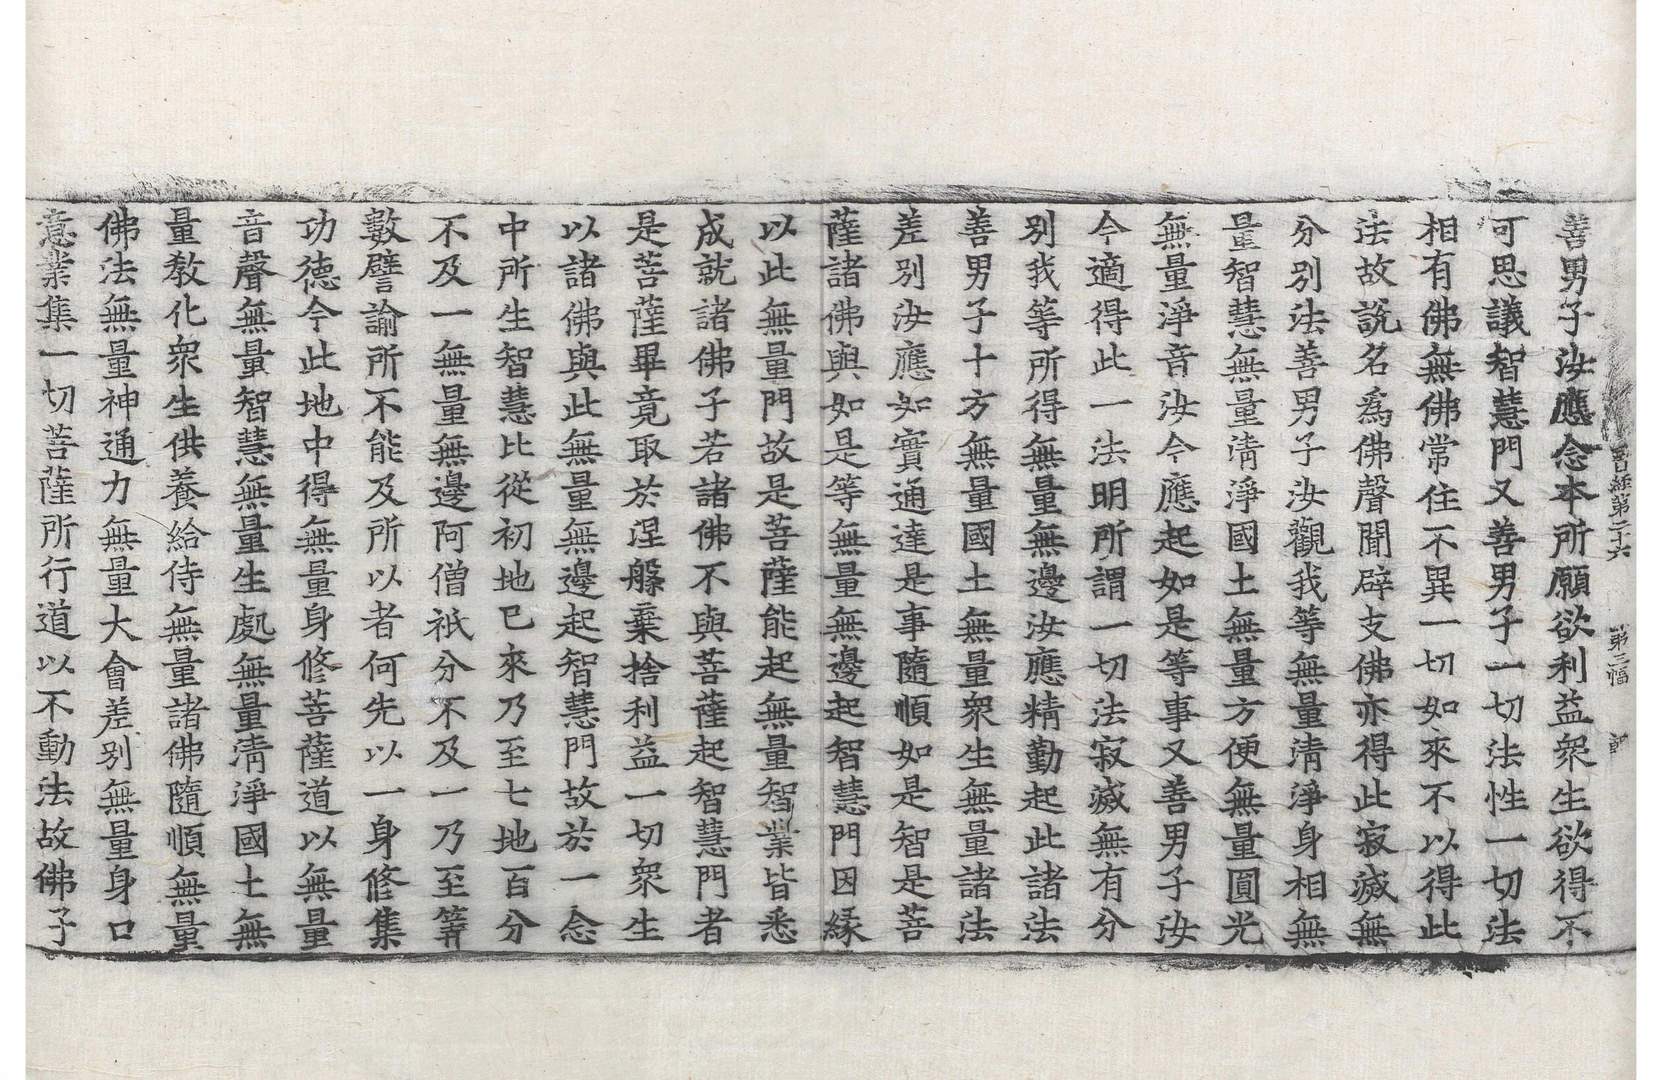 晋経第二十六 第三幅
善男子汝應念本所願欲利益衆生欲得不
可思議智慧門又善男子一切法性一切法
相有佛無佛常住不異一切如來不以得此
法故説名爲佛聲聞辟支佛亦得此寂滅無
分別法善男子汝觀我等無量清淨身相無
量智慧無量清淨國土無量方便無量圓光
無量淨音汝今應起如是等事又善男子汝
今適得此一法明所謂一切法寂滅無有分
別我等所得無量無邊汝應精勤起此諸法
善男子十方無量國土無量衆生無量諸法
差別汝應如實通達是事隨順如是智是菩
薩諸佛與如是等無量無邊起智慧門因縁
以此無量門故是菩薩能起無量智業皆悉
成就諸佛子若諸佛不與菩薩起智慧門者
是菩薩畢竟取於涅槃棄捨利益一切衆生
以諸佛與此無量無邊起智慧門故於一念
中所生智慧比從初地已來乃至七地百分
不及一無量無邊阿僧祇分不及一乃至筭
數譬諭所不能及所以者何先以一身修集
功德今此地中得無量身修菩薩道以無量
音聲無量智慧無量生處無量清淨國土無
量教化衆生供養給侍無量諸佛隨順無量
佛法無量神通力無量大會差別無量身口
意業集一切菩薩所行道以不動法故佛子